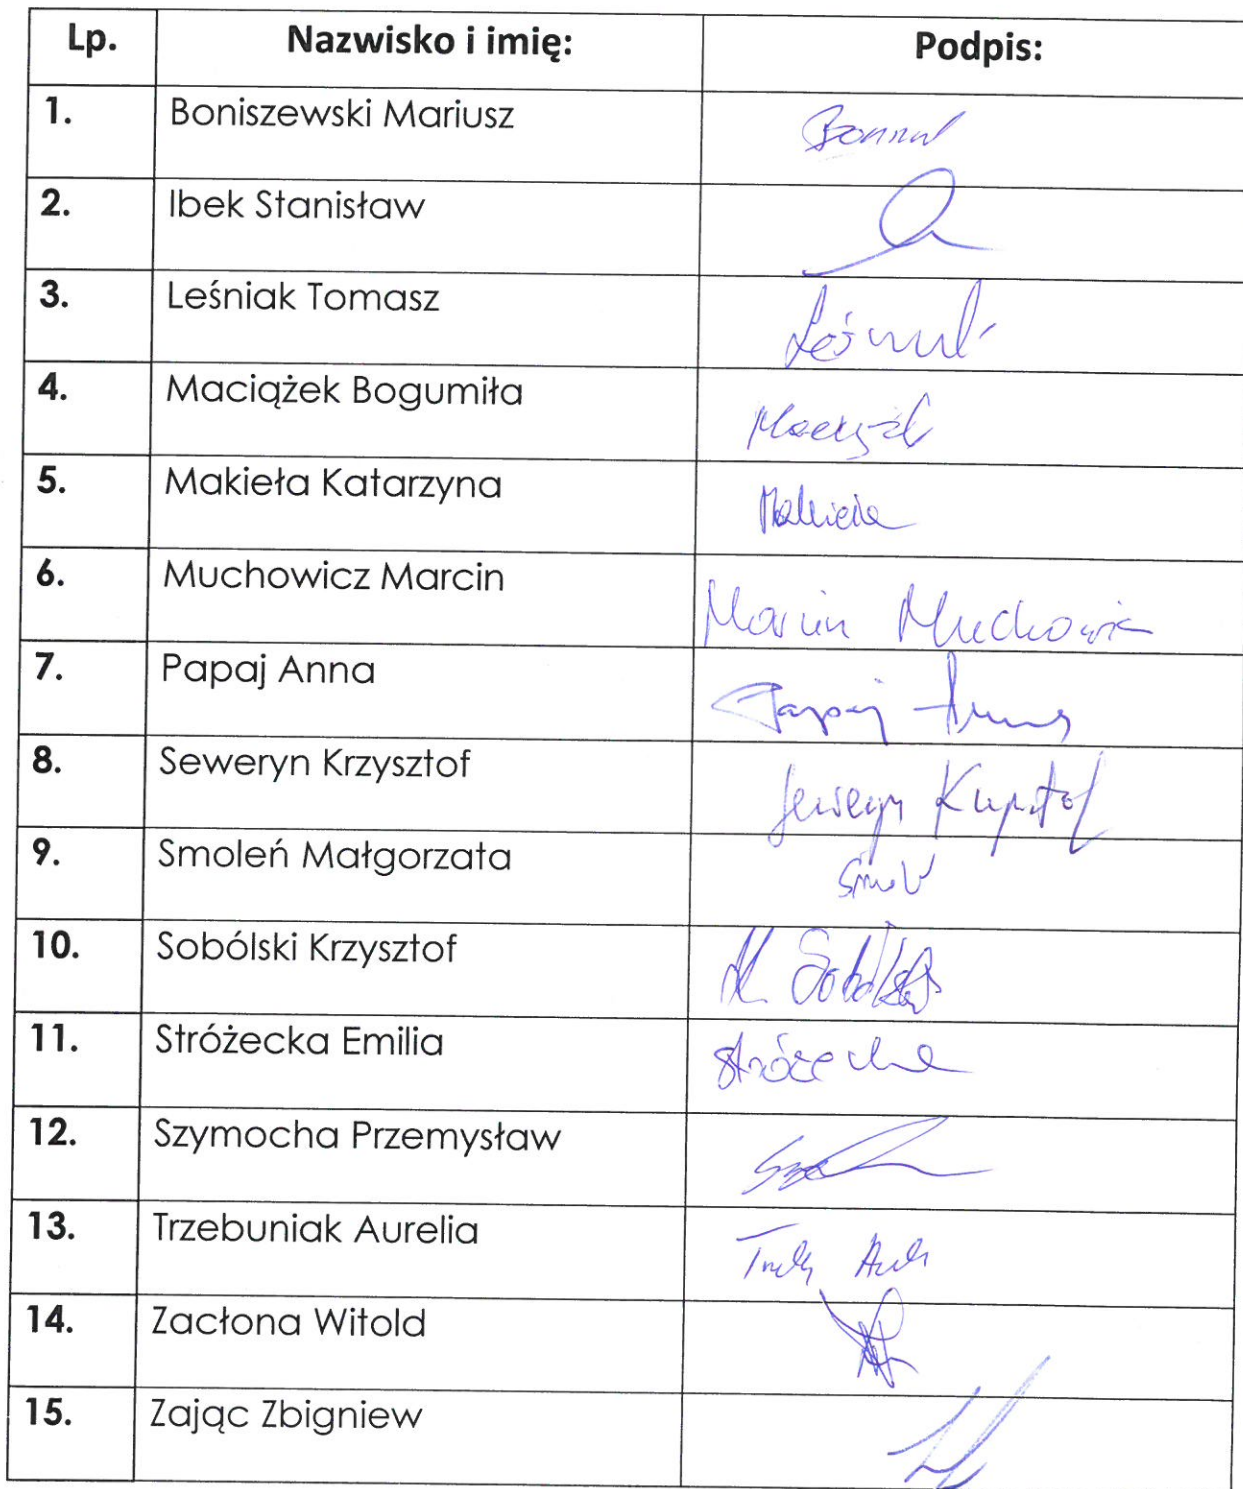 Lp. Nazwisko i imię: Podpis:
1. Boniszewski Mariusz
2. Ibek Stanisław
3. Leśniak Tomasz
4. Maciążek Bogumiła
5. Makieła Katarzyna
6. Muchowicz Marcin Marcin Muchowicz
7. Papaj Anna Papaj Anna
8. Seweryn Krzysztof Seweryn Krzysztof
9. Smoleń Małgorzata
10. Sobólski Krzysztof
11. Stróżecka Emilia Stróżecka
12. Szymocha Przemysław
13. Trzebuniak Aurelia
14. Zacłona Witold
15. Zając Zbigniew